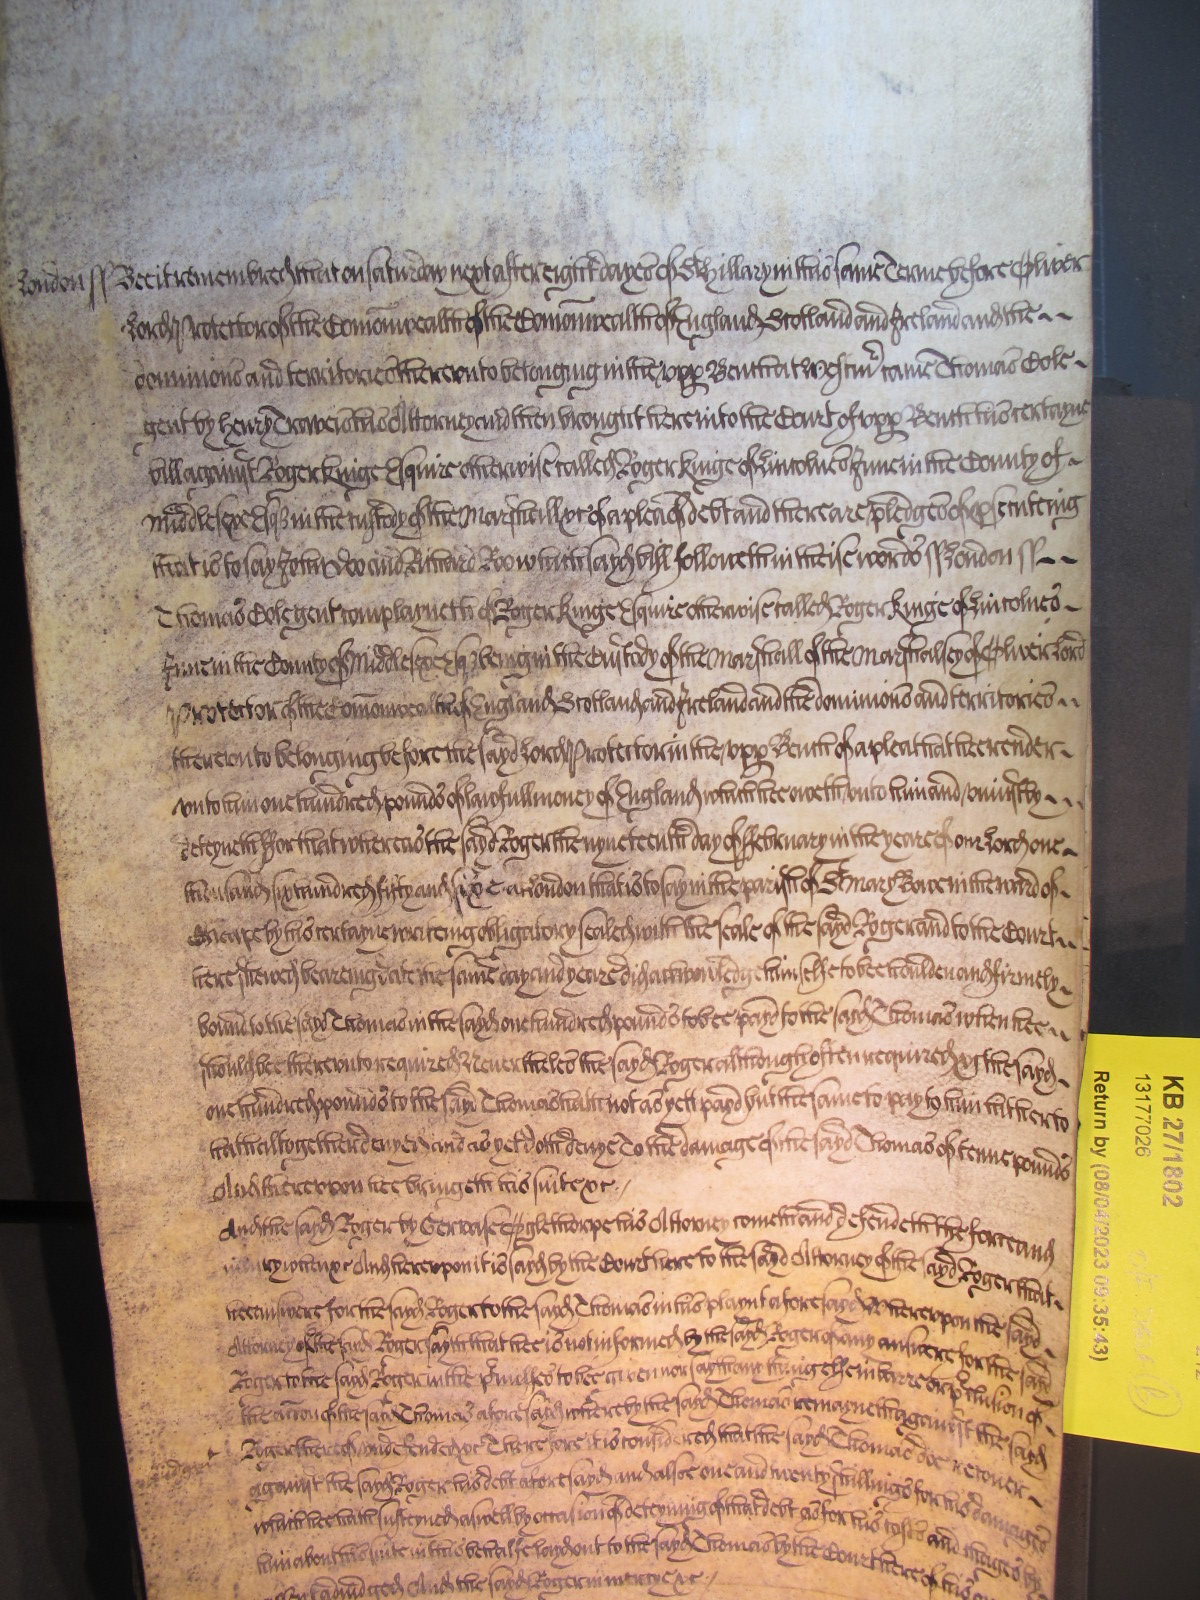 London ss Bee it remembred that on saturday next after eight dayes of St Hillary in this same Terme before Oliver
Lord Protector of the Comonwealth of the Comonwealth of England Scotland and Ireland and the
dominions and territories thereunto belonging in the upp Bench at Westmr came Thomas Cole
gent by Henry Travers his Attorney and then brought here into the Court of upp Bench his certayne
bill against Roger Kinge Esquire otherwise called Roger Kinge of Lincolnes Inne in the County of
Middlesex Esq in the custody of the Marshall &c of a plea of debt and there are pledges of psecuteing
that is to say John Doo and Richard Roo which sayd bill followeth in theise words ss London ss
Thomas Cole gent complayneth of Roger Kinge Esquire otherwise called Roger Kinge of Lincolnes
Inne in the County of Middlesex Esq being in the Custody of the Marshall of the Marshalsey of Oliver Lord
Protector of the Comonwealth of England Scotland and Ireland and the dominions and territories
thereunto belonging before the sayd Lord Protector in the upp Bench of a plea that hee render
unto him one hundred pounds of lawfull money of England which hee oweth unto him and uniustly
deteyneth For that whereas the sayd Roger the nyneteenth day of February in the yeare of our Lord one
thousand six hundred fifty and sixe at London that is to say in the parish of St Mary Bowe in the ward of
Cheape by his certayne writeing obligatory sealed with the seale of the sayd Roger and to the Court
here shewed beareing date the same day and yeare did acknowledge himselfe to bee houlden and firmely
bound to the sayd Thomas in the sayd one hundred pounds to bee payd to the sayd Thomas when hee
should bee thereunto required Nevertheles the sayd Roger although often required &c the sayd
one hundred pounds to the sayd Thomas hath not as yett payd but the same to pay to him hitherto
hath altogether denyed and as yet doth denye To the damage of the sayd Thomas of tenne pounds
And thereupon hee bringeth his suite &c
And the sayd Roger by Gervase Oglethorpe his Attorney cometh and defendeth the force and
iniury when &c And hereupon it is sayd by the Court here to the sayd Attorney of the sayd Roger that
hee answere for the sayd Roger to the sayd Thomas in his playnt aforesayd Whereupon the sayd
Attorney of the sayd Roger sayth that hee is not informed by the sayd Roger of any answere for the said
Roger to the sayd Roger in the pmisses to bee given nor sayth any thinge here in barre or pclusion of
the action of the said Thomas aforesayd whereby the sayd Thomas remayneth against the sayd
Roger thereof undefended &c Therefore it is considered that the sayd Thomas doe recover
against the sayd Roger his debt aforesayd and alsoe one and twenty shillings for his damages
which hee hath susteyned aswell by occasion of deteyning of that debt as for his costs and charges by
him about his suite in this behalfe layd out to the sayd Thomas by the Court here of his
adiudged And the sayd Roger in mercy &c
KB 27/1802
13177026
Return by (08/04/2023 09:35:43)